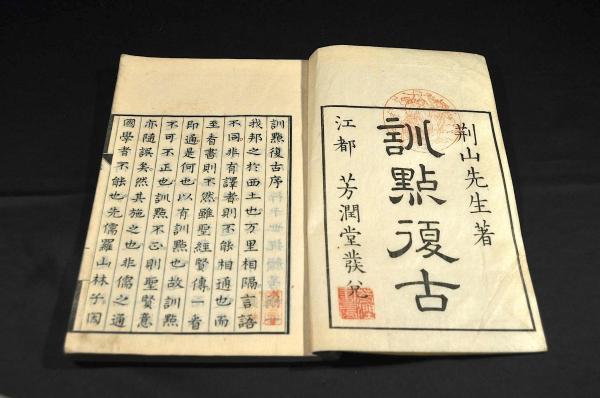 荆山先生著
訓點復古
江都 芳潤堂發兌
訓點復古序
我邦之於西土也万里相隔言語
不同非有譯者則不能相通也而
至看書則不然雖聖經賢傳一看
即通是何也以有訓點也故訓點
不可不正也訓點不正則聖賢意
亦随誤矣然其施之也非儒之通
國學者不能也先儒羅山林子因